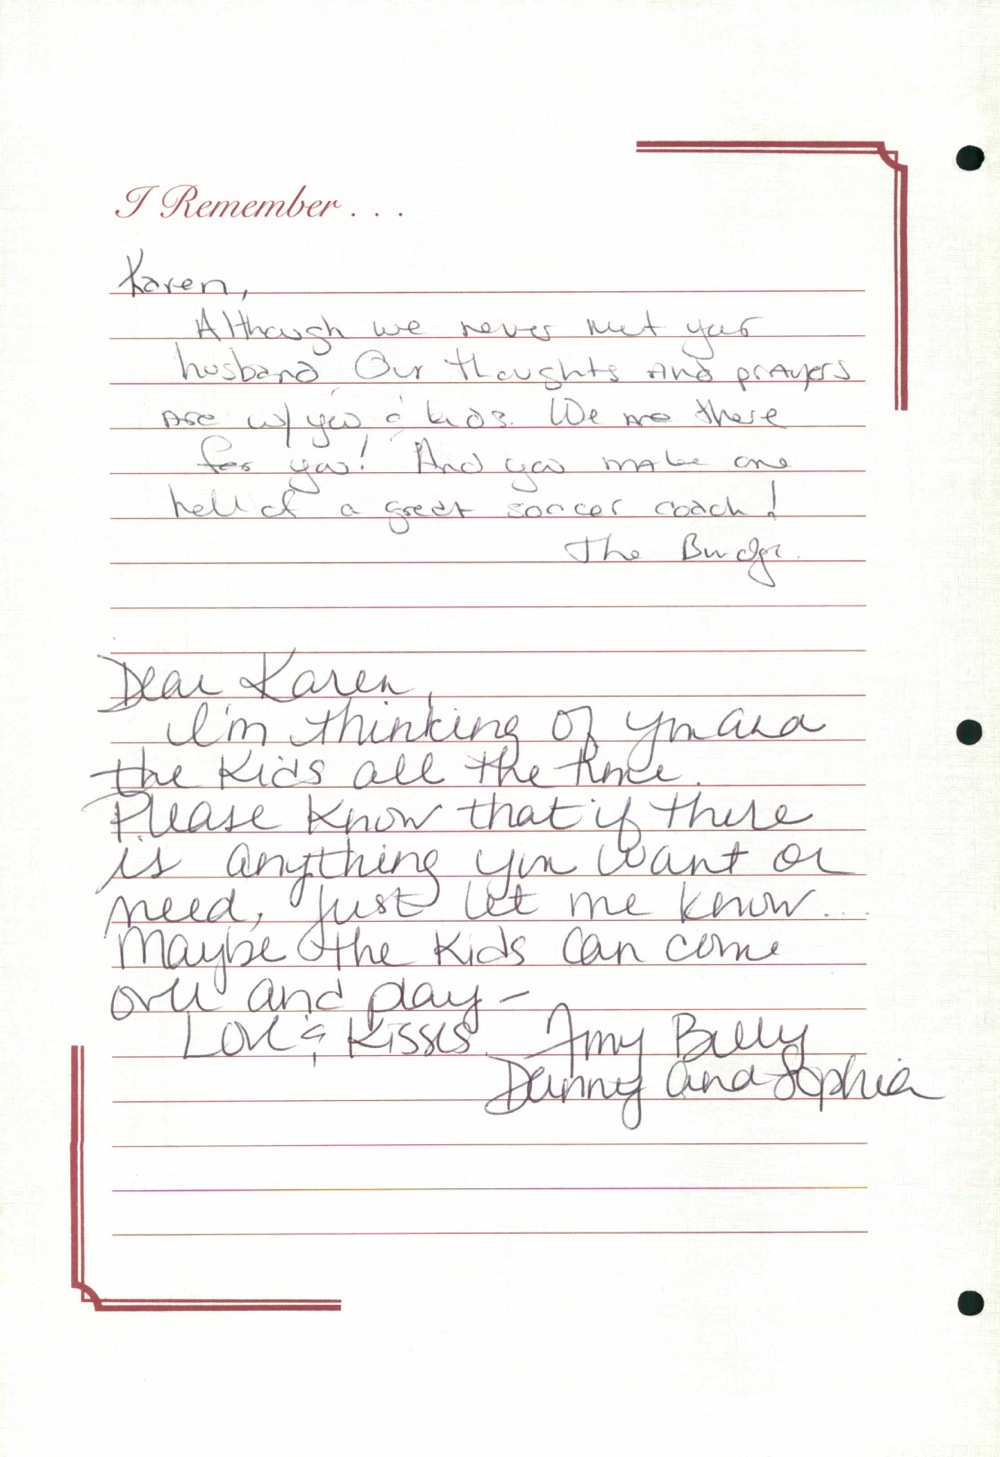 I Remember . . .
Karen,
Although we never met your
husband, Our thoughts And prAyers
Are w/ you & kids. We are there
for you! And you make one
hell of a great soccer coach!
The
Dear Karen,
I'm thinking of you and
the Kids all the time.
Please know that if there
is anything you want or
need, just let me know...
Maybe the Kids can come
over and play –
Love & Kisses Amy Billy
Danny and Sophia